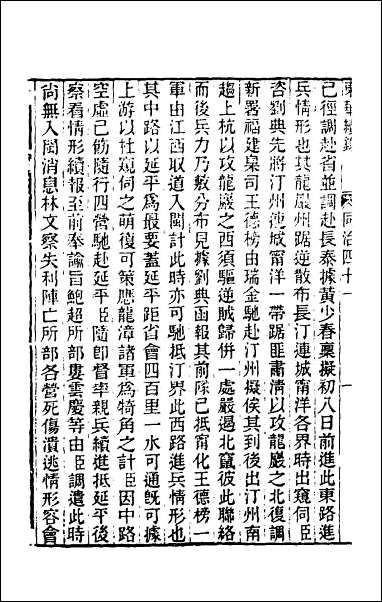 東華續錄　同治四十一　一
已徑調赴省並調赴長泰據黃少春稟擬初八日前進此東路進
兵情形也其龍巖州踞逆散布長汀連城甯洋各界時出窺伺臣
咨劉典先將汀州連城甯洋一帶踞匪肅清以攻龍巖之北復調
新署福建臬司王德榜由瑞金馳赴汀州擬俟其到後出汀州南
趨上杭以攻龍巖之西須驅逆賊歸併一處嚴遏北竄彼此聯絡
而後兵力乃敷分布見據劉典函報其前隊已抵甯化王德榜一
軍由江西取道入閩計此時亦可馳抵汀界此西路進兵情形也
其中路以延平爲最要蓋延平距省會四百里一水可通旣可據
上游以杜窺伺之萌復可策應龍漳諸軍爲犄角之計臣因中路
空虛已飭隨行四營馳赴延平臣隨卽督率親兵續進抵延平後
察看情形續報至前奉諭旨鮑超所部婁雲慶等由臣調遣此時
尙無入閩消息林文察失利陣亡所部各營死傷潰逃情形容會